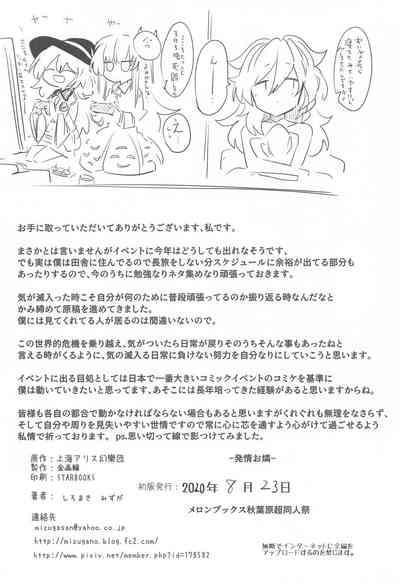 お手に取っていただいてありがとうございます、私です。
まさかとは言いませんがイベントに今年はどうしても出れなそうです、
でも実は僕は田舎に住んでるので長旅をしない分スケジュールに余裕が出てる部分も
あったりするので、今のうちに勉強なりネタ集めなり頑張っておきます。
気が滅入った時こそ自分が何のために普段頑張ってるのか振り返る時なんだなと
かみ締めて原稿を進めてきました。
僕には見てくれてる人が居るのは間違いないので。
この世界的危機を乗り越え、気がついたら日常が戻りそのうちそんな事もあったねと
言える時がくるように、気の滅入る日常に負けない努力を自分なりにしていこうと思います。
イベントに出る目処としては日本で一番大きいコミックイベントのコミケを基準に
僕は動いていきたいと思ってます、あそこには長年培ってきた経験があると思いますからね。
皆様も各自の都合で動かなければならない場合もあると思いますがくれぐれも無理をなさらず、
そして自分や周りを見失いやすい世情ですので常に心に芯を通すよう心がけて過ごせるよう
私情で祈っております。 ps.思い切って線で影つけてみました。
原作:上海アリス幻樂団
製作:金画輪
印刷:STARBOOKS
著者: しろまさ みずが
連絡先
mizugasan@yahoo.co.jp
http://mizugano.blog.fc2.com/
http://www.pixiv.net/member.php?id=178582
-発情お燐-
初版発行: 2020年 8月 23日
メロンブックス秋葉原超同人祭
無断でインターネットに全編を
アップロードするのを禁じます。